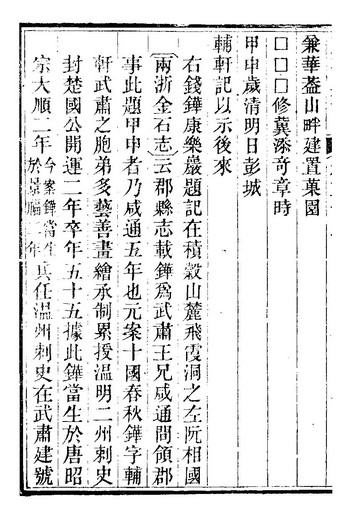 兼華葢山畔建置菓園
□□□修冀添奇章時
甲申歲清明日彭城
輔軒記以示後來
右錢鏵康樂巖題記在積穀山麓飛霞洞之左阮相國
〔兩浙金石志〕云郡縣志載鏵爲武肅王兄咸通間領郡
事此題甲申者乃咸通五年也元案十國春秋鏵字輔
軒武肅之胞弟多藝善畫繪承制累授温明二州刺史
封楚國公開運二年卒年五十五據此鏵當生於唐昭
宗大順二年
今案鏵當生
於景福二年
其任温州刺史在武肅建號